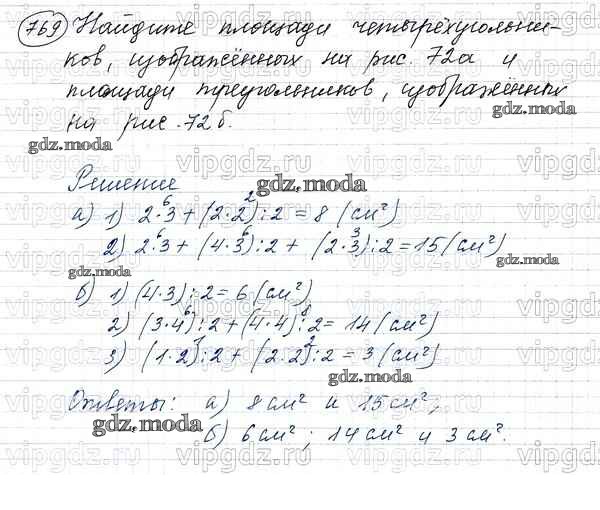 769 Найдите площади четырёхугольни-
ков, изображённых на рис. 72а и
площади треугольников, изображённых
на рис. 72б.
gdz.moda
Решение
gdz.moda
а) 1) 2·3 + (2·2):2 = 8 (см²)
6 2
2) 2·3 + (4·3):2 + (2·3):2 = 15 (см²)
6 6 3
gdz.moda
gdz.moda
б) 1) (4·3):2 = 6 (см²)
2) (3·4):2 + (4·4):2 = 14 (см²)
6 8
3) (1·2):2 + (2·2):2 = 3 (см²)
1 2
gdz.moda
Ответы: а) 8 см² и 15 см²;
gdz.moda
б) 6 см²; 14 см² и 3 см².
vipgdz.ru